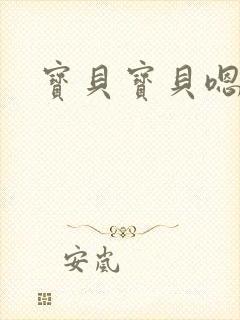 寶貝寶貝嗯
安嵐